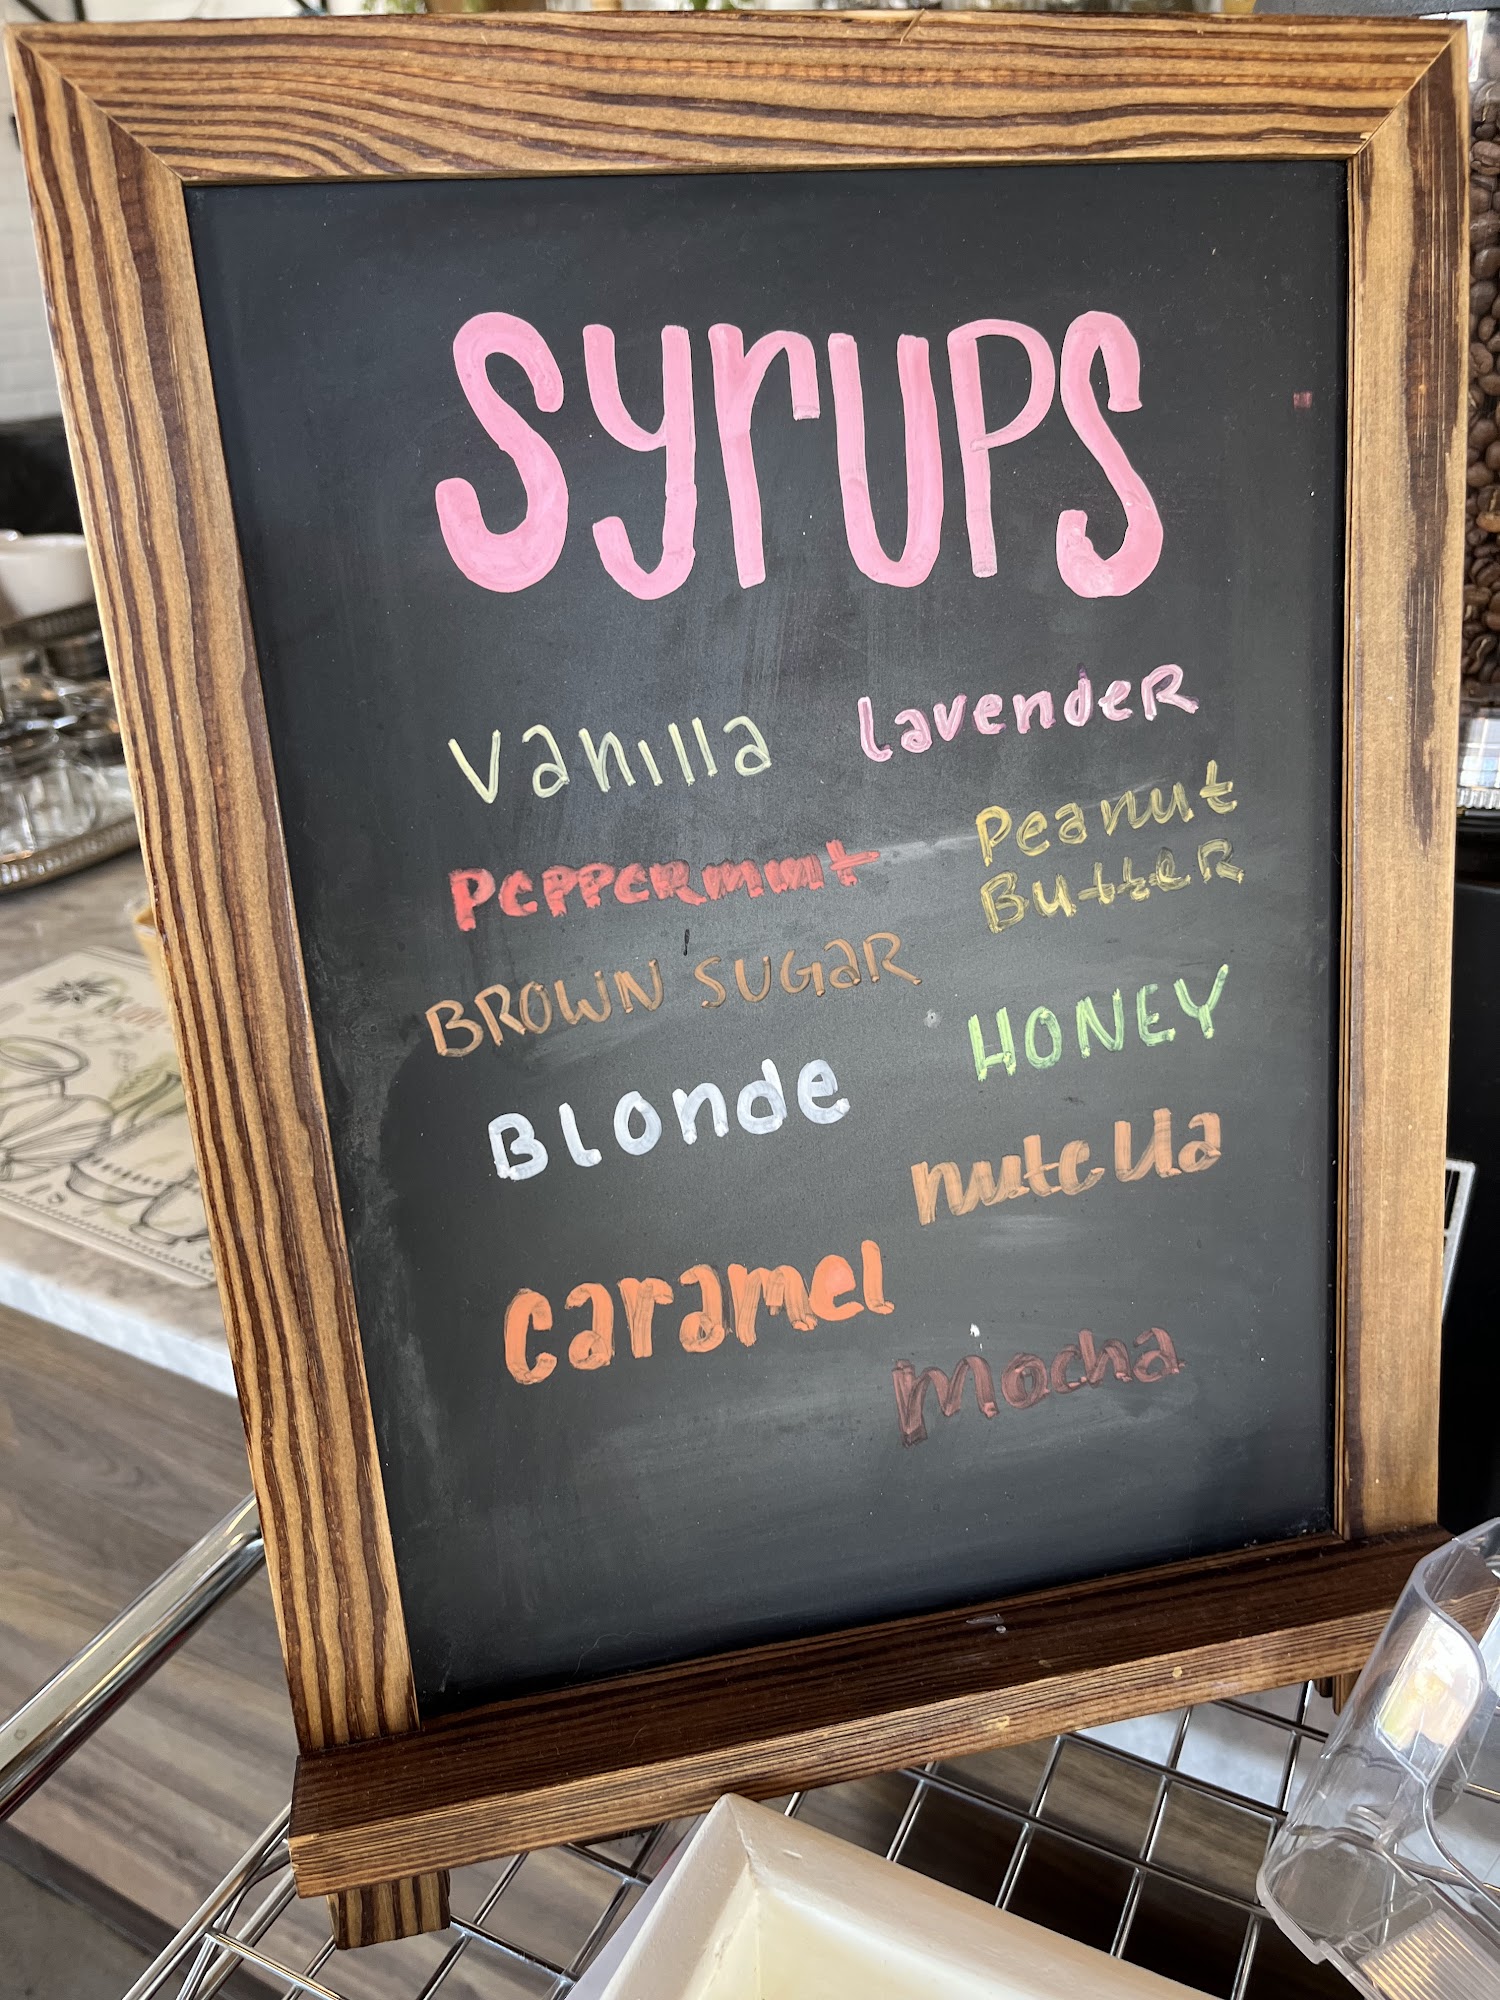 syrups
vanilla
lavender
Peppermint
Peanut
Butter
BROWN SUGAR
HONEY
Blonde
nutella
caramel
mocha